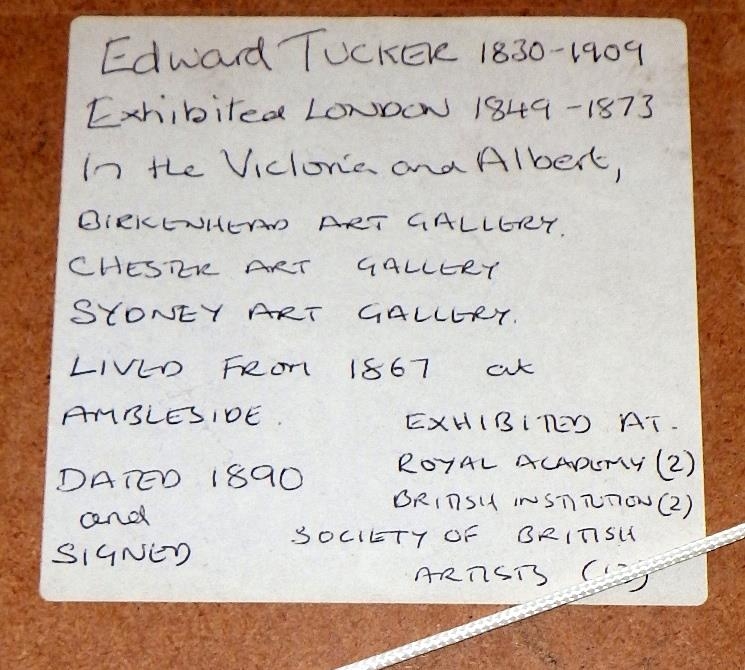 Edward TUCKER 1830-1909
Exhibited LONDON 1849-1873
In the Victoria and Albert,
BIRKENHEAD ART GALLERY.
CHESTER ART GALLERY
SYDNEY ART GALLERY.
LIVED FROM 1867 at
AMBLESIDE.
DATED 1890
and
SIGNED
EXHIBITED AT.
ROYAL ACADEMY (2)
BRITISH INSTITUTION (2)
SOCIETY OF BRITISH
ARTISTS